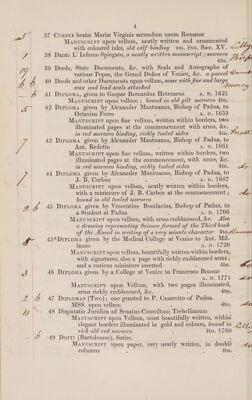 4
37 CURSUS beatæ Mariæ Virginis secundum usum Romanæ
MANUSCRIPT upon vellum, neatly written and ornamented
with coloured inks, old calf binding sm. 8vo. Sæc. XV.
38 Dante L' Inferno Spiegato, a neatly written manuscript; morocco
4to.
39 Deeds, State Documents, &c. with Seals and Autographs of
various Popes, the Grand Dukes of Venice, &c. a parcel
40 Deeds and other Documents upon vellum, some with fine and large
wax and lead seals attached
41 Diploma given to Gaspar Bernardus Hetruscus A. D. 1621
MANUSCRIPT upon vellum; bound in old gilt morocco 4to.
42 Diploma given by Alexander Mantuanus, Bishop of Padua, to
Octavius Ferro A. D. 1659
MANUSCRIPT upon fine vellum, written within borders, two
illuminated pages at the commencement with arms, &c.
in red morocco binding, richly tooled sides 4to.
43 Diploma given by Alexander Mantuanus, Bishop of Padua, to
Aut. Redetto A. D. 1661
MANUSCRIPT upon fine vellum, written within borders, two
illuminated pages at the commencement, with arms, &c.
in red morocco binding, richly tooled sides 4to.
44 Diploma given by Alexander Mantuanus, Bishop of Padua, to
J. B. Carbon A. D. 1687
MANUSCRIPT upon vellum, neatly written within borders,
with a miniature of J. B. Carbon at the commencement;
bound in old tooled morocco
45 Diploma given by Vincentius Bonifacius, Bishop of Padua, to
a Student at Padua A. D. 1706
MANUSCRIPT upon vellum, with arms emblazoned, &c. Also
a drawing representing Science formed of the Third book
of the Æneid in writing of a very minute character 4to.
45*Diploma given by the Medical College at Venice to Ant. Milimum
A. D. 1720
MANUSCRIPT upon vellum, beautifully written within borders,
with signatures, also a page with richly emblazoned arms,
and a curious miniature inserted 4to.
46 Diploma given by a College at Venice to Francesco Benone
A. D. 1771
MANUSCRIPT upon Vellum, with two pages illuminated,
arms richly emblazoned, &c. 4to.
47 DIPLOMAS (Two); one granted to P. Casarotto of Padua.
MSS. upon vellum 4to.
48 Disputatio Juridica ad Senatus-Consultum Trebellianum
MANUSCRIPT upon Vellum, most beautifully written, within
elegant borders illuminated in gold and colours, bound in
rich old red morocco 4to. 1768
49 DOTTI (Bartolomeo), Satire.
MANUSCRIPT upon paper, very neatly written, in double
columns 4to.